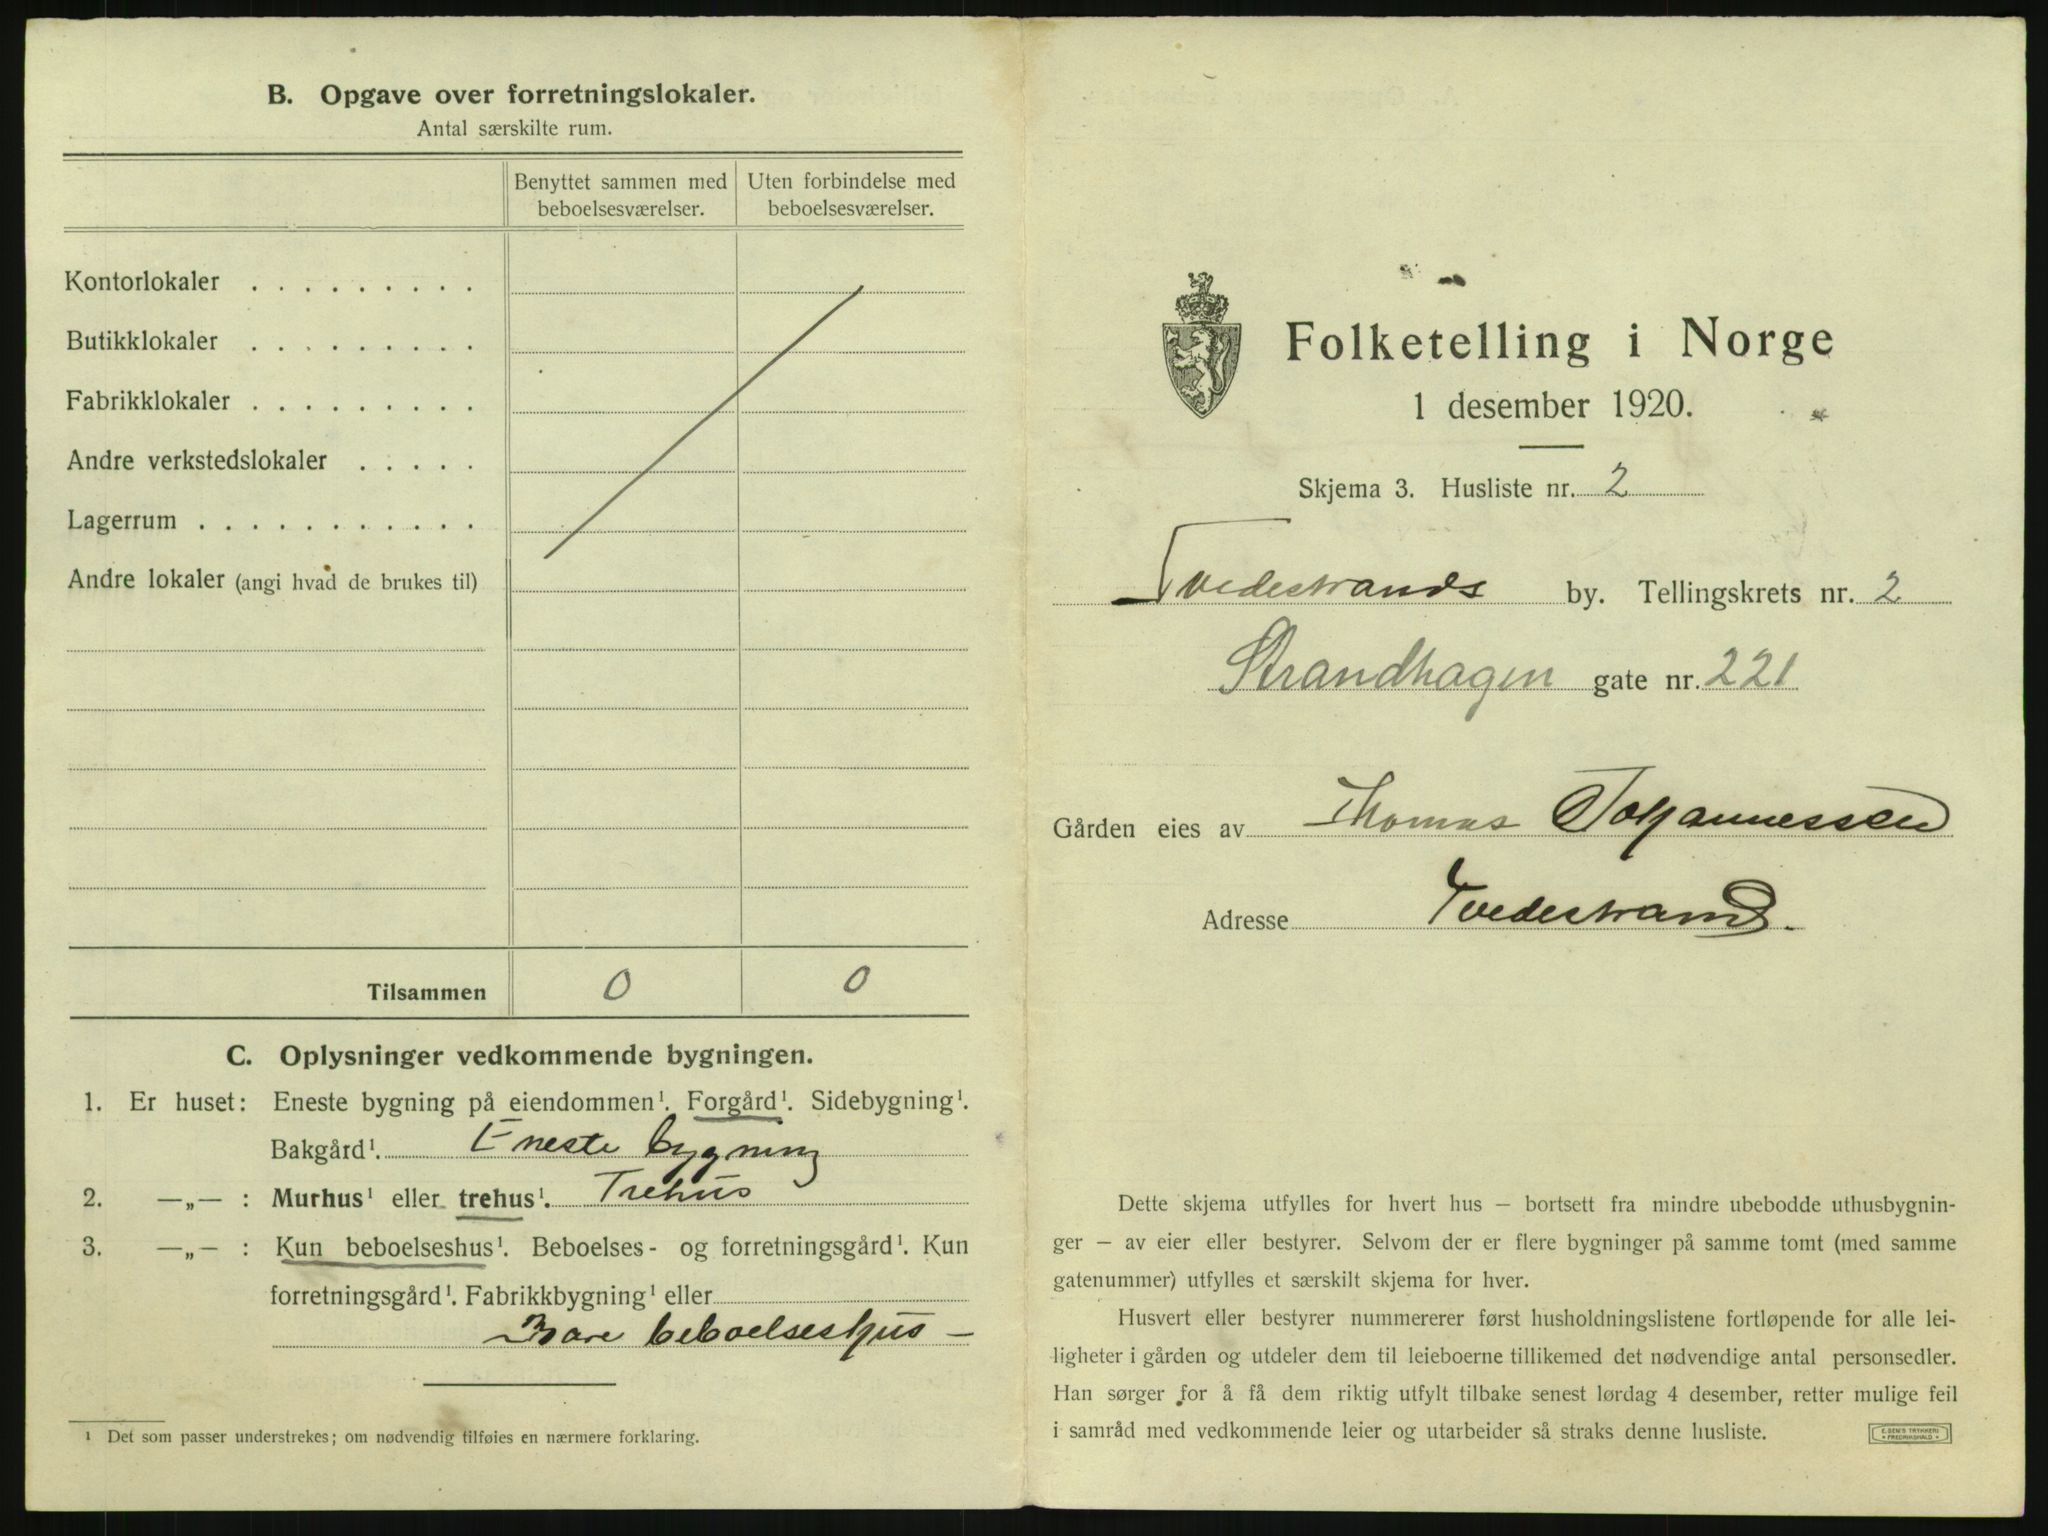 B. Opgave over forretningslokaler.
Antal særskilte rum.
Benyttet sammen med beboelsesværelser.
Uten forbindelse med beboelsesværelser.
Kontorlokaler . . . . . . . . .
Butikklokaler . . . . . . . . .
Fabrikklokaler . . . . . . . . .
Andre verkstedslokaler . . . . .
Lagerrum . . . . . . . . . . .
Andre lokaler (angi hvad de brukes til)
Tilsammen 0 0
C. Oplysninger vedkommende bygningen.
1. Er huset: Eneste bygning på eiendommen¹. Forgård¹. Sidebygning¹.
Bakgård¹. Eneste bygning
2. —„— : Murhus¹ eller trehus¹. Trehus
3. —„— : Kun beboelseshus¹. Beboelses- og forretningsgård¹. Kun
forretningsgård¹. Fabrikkbygning¹ eller
Bare beboelseshus —
¹ Det som passer understrekes; om nødvendig tilføies en nærmere forklaring.
Folketelling i Norge
1 desember 1920.
Skjema 3. Husliste nr. 2
Tvedestrands by. Tellingskrets nr. 2
Strandhagen gate nr. 221
Gården eies av Thomas Johannessen
Adresse Tvedestrand.
Dette skjema utfylles for hvert hus — bortsett fra mindre ubebodde uthusbygnin-
ger — av eier eller bestyrer. Selvom der er flere bygninger på samme tomt (med samme
gatenummer) utfylles et særskilt skjema for hver.
Husvert eller bestyrer nummererer først husholdningslistene fortløpende for alle lei-
ligheter i gården og utdeler dem til leieboerne tillikemed det nødvendige antal personsedler.
Han sørger for å få dem riktig utfylt tilbake senest lørdag 4 desember, retter mulige feil
i samråd med vedkommende leier og utarbeider så straks denne husliste.
E. SEM'S TRYKKERI
• FREDRIKSHALD •